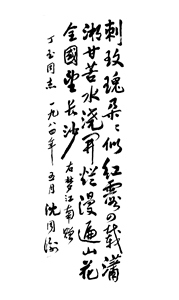 刺玫瑰朵々似红云の载潇
湘甘苦水浇开烂漫遍山花
全国望长沙 右梦江南
丁玉同志 一九八四年五月 沈因